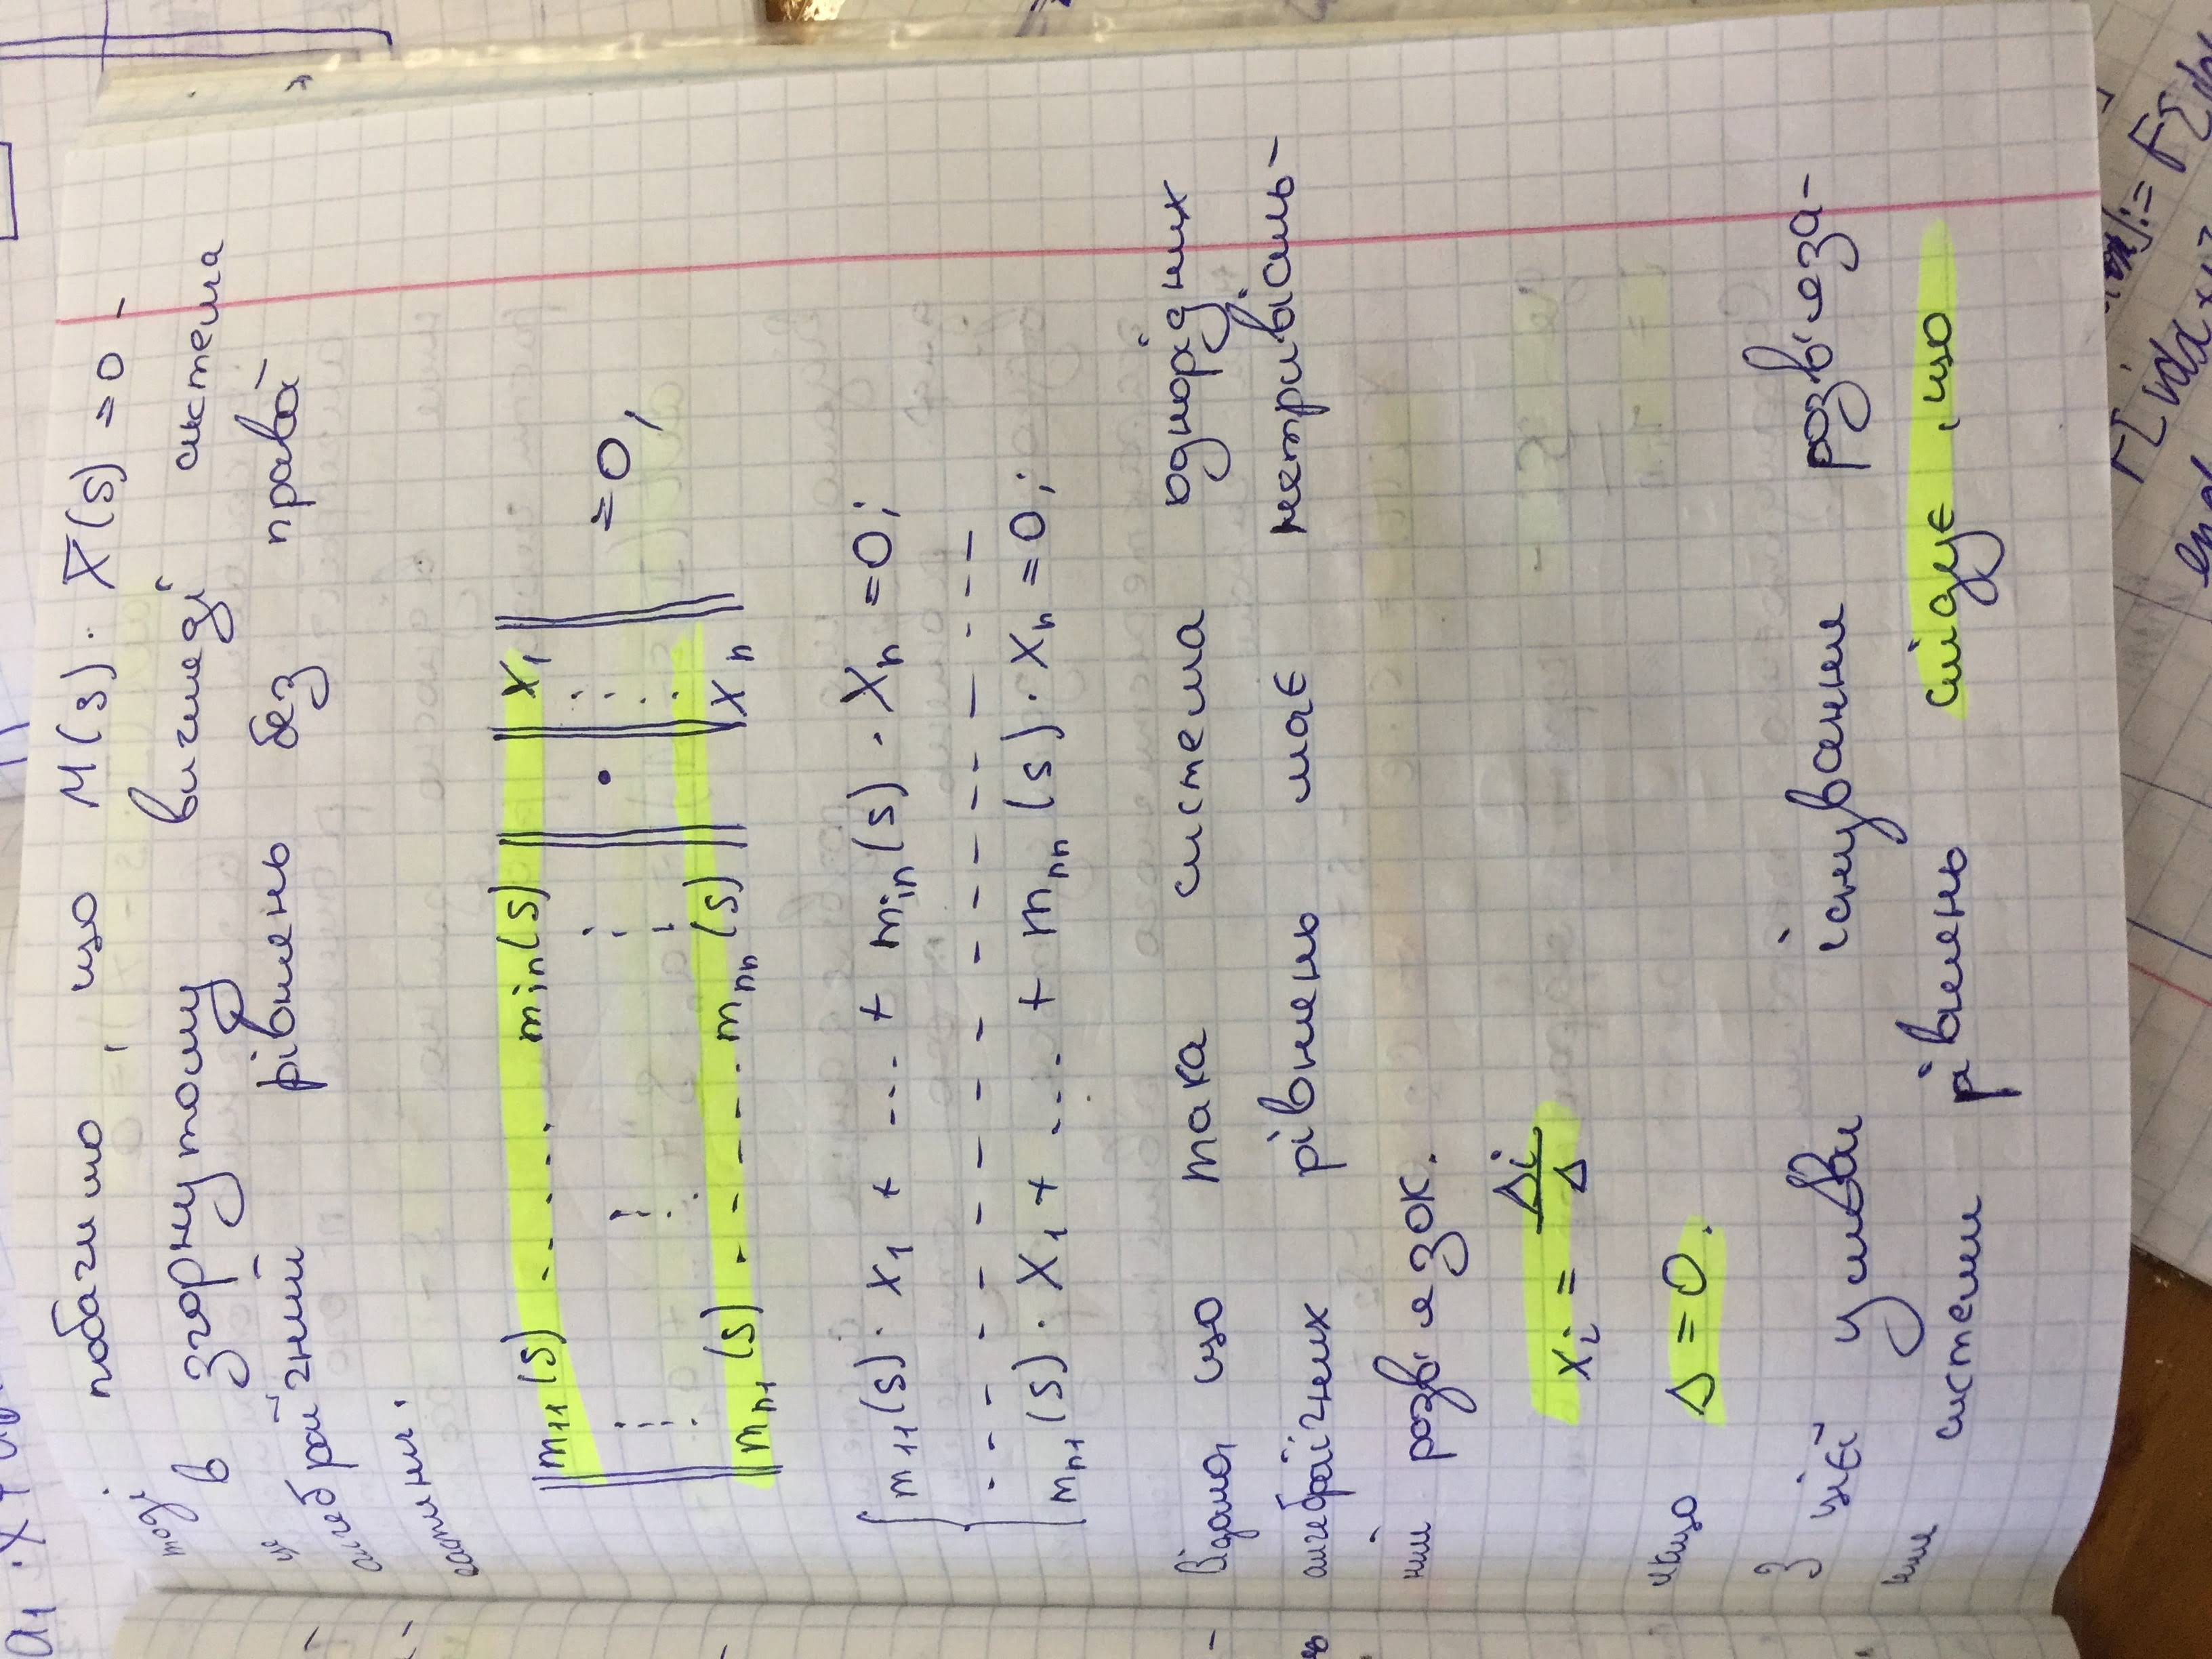 a₁ · X +
тоді побачимо, що M(s) · X̅(s) = 0 -
це в згорнутому вигляді система
алгебраїчний рівнянь без правої
частини.
‖ m₁₁(s) ..... m_in(s) ‖ · ‖ x₁ ‖ = 0,
‖ m_n1(s) ...... m_nn(s) ‖ ‖ x_n ‖
{ m₁₁(s) · x₁ + ... + m_in(s) · x_n = 0;
m_n1(s) · x₁ + .... + m_nn(s) · x_n = 0;
Відомо, що така система однорідних
алгебраїчних рівнянь має нетривіаль-
ний розв'язок.
x_i = Δi / Δ
якщо Δ = 0.
З цієї умови існування розв'яза-
ння системи рівнянь слідує, що
end